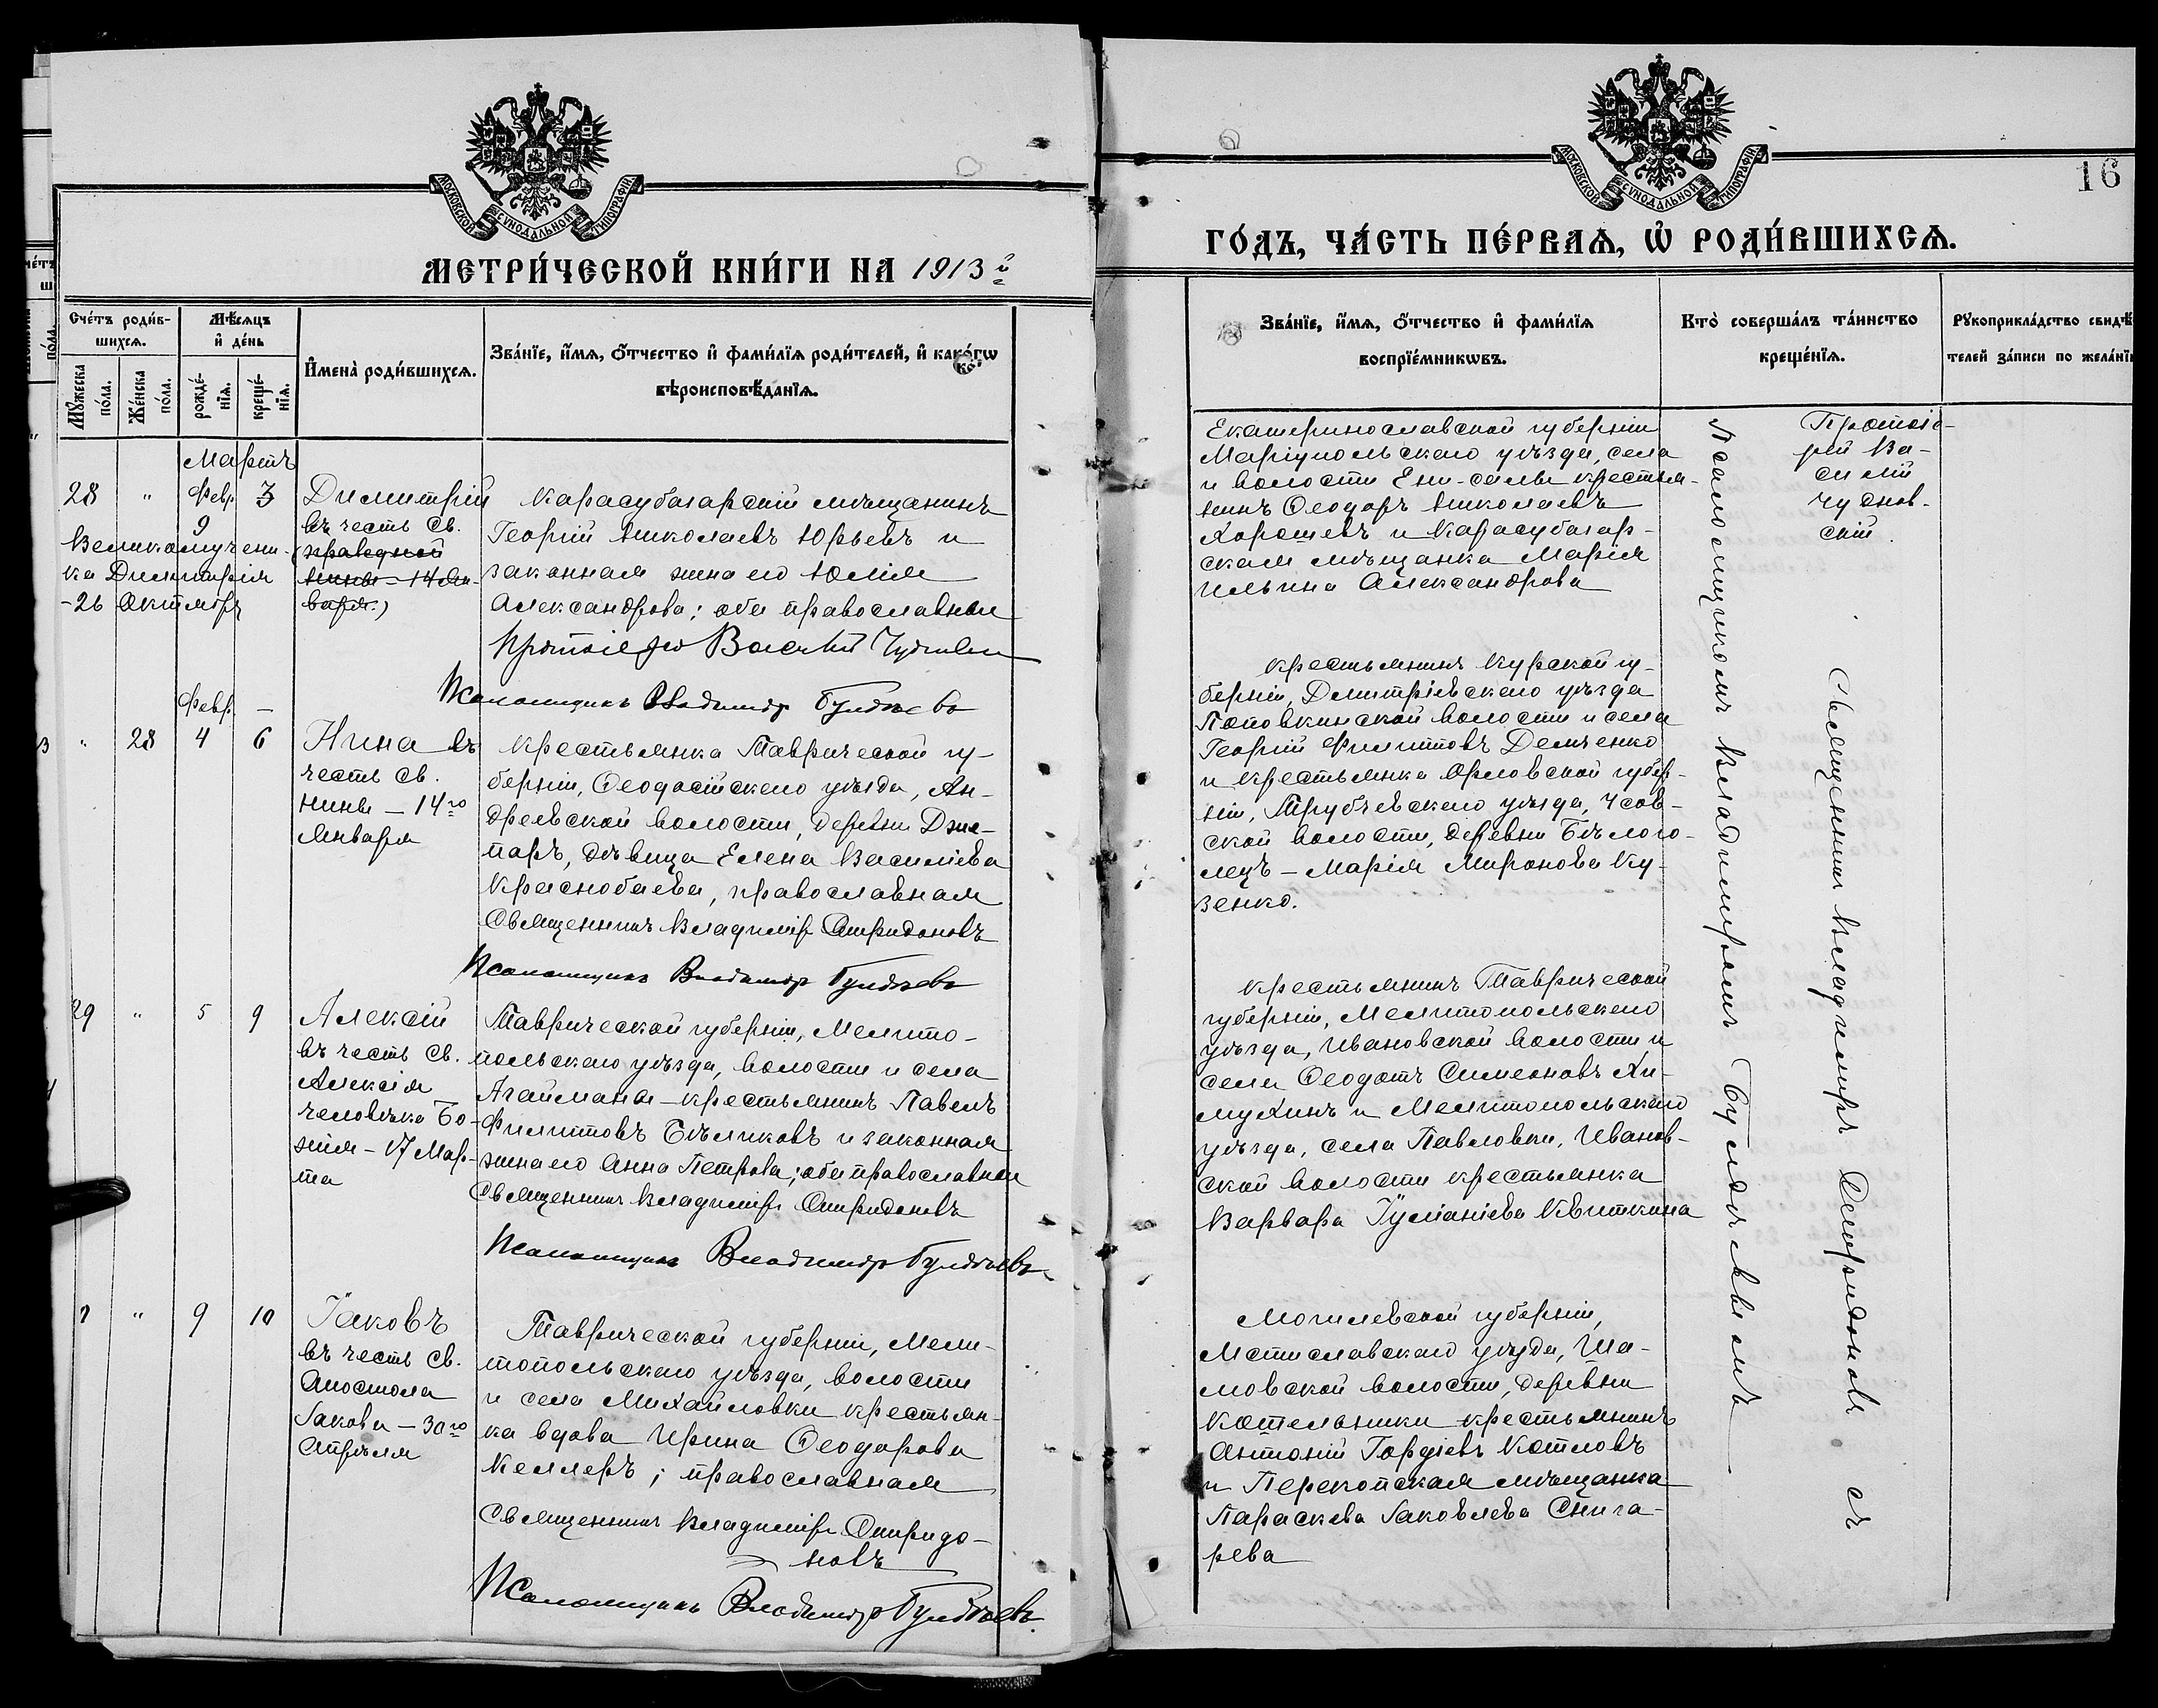 МОСКОВСКОЙ СѴНОДАЛЬНОЙ ТИПОГРАФІИ
МЕТРИ́ЧЕСКОЙ КНИ́ГИ НА 1913й
Сче́тъ роди́в-
шихсѧ.
Мꙋ́жеска
по́ла.
Же́нска
по́ла.
Мѣ́сѧцъ
и҆ де́нь
рожде́-
нїѧ.
креще́-
нїѧ.
И҆мена̀ роди́вшихсѧ.
Зва́нїе, и҆́мѧ, ѻ҆́тчество и҆ фами́лїѧ роди́телей, и҆ како́гѡ
вѣроисповѣ́данїѧ.
Мартъ
28 " Февр. 3
9
Великомучени-
ка Димитрія
-26 Октября
Димитрій
въ честь Св.
(праведной
Нины - 14 Ян-
варя.)
Карасубазарскій мѣщанинъ
Георгій Николаевъ Юрьевъ и
законная жена его Юлія
Александрова; оба православные
Протоіерей Василій Чудновскій
Псаломщикъ Владиміръ Булдчевъ
Февр. -
" 28 4 6
Нина въ
честь св.
Нины - 14го
Января
Крестьянка Таврической гу-
берніи, Ѳеодосійскаго уѣзда, Ан-
дреевской волости, деревни Джа-
паръ, дѣвица Елена Василіева
Краснобаева, православная
Священникъ Владиміръ Спиридоновъ
Псаломщикъ Владиміръ Булдчевъ
29 " 5 9
Алексій
въ честь Св.
Алексія
человѣка Бо-
жія - 17 Мар-
та
Таврической губерніи, Мелито-
польскаго уѣзда, волости и села
Агаймана - крестьянинъ Павелъ
Филипповъ Бѣликовъ и законная
жена его Анна Петрова; оба православные
Священникъ Владиміръ Спиридоновъ
Псаломщикъ Владиміръ Булдчевъ
" 9 10
Іаковъ
въ честь Св.
Апостола
Іакова - 30го
Апрѣля
Таврической губерніи, Мели-
топольскаго уѣзда, волости
и села Михайловки крестьян-
ка вдова Ирина Ѳеодорова
Келлеръ; православная
Священникъ Владиміръ Спиридо-
новъ
Псаломщикъ Владиміръ Булдчевъ
МОСКОВСКОЙ СѴНОДАЛЬНОЙ ТИПОГРАФІИ
16
ГО́ДЪ, ЧА́СТЬ ПЕ́РВАѦ, Ѡ҆ РОДИ́ВШИХСѦ.
Зва́нїе, и҆́мѧ, ѻ҆́тчество и҆ фами́лїѧ
воспрїе́мникѡвъ.
Кто̀ соверша́лъ та́инство
креще́нїѧ.
Рꙋкоприкла́дство свидѣ́
телей за́писи по жела́нї
Екатеринославской губерніи
Маріупольскаго уѣзда, села
и волости Ени-сальи крестья-
нинъ Ѳеодоръ Николаевъ
Хорошевъ и Карасубазар-
ская мѣщанка Марія
Ильина Александрова
Крестьянинъ Курской гу-
берніи, Дмитріевскаго уѣзда
Поповкинской волости и села
Георгій Филипповъ Демченко
и крестьянка Орловской губер-
ніи, Трубчевскаго уѣзда, Усов-
ской волости, деревни Бѣлого-
лецъ - Марія Миронова Ку-
зенко.
Крестьянинъ Таврической
губерніи, Мелитопольскаго
уѣзда, Ивановской волости и
села Ѳеодотъ Симеоновъ Хи-
мухинъ и Мелитопольскаго
уѣзда, села Павловки, Иванов-
ской волости крестьянка
Варвара Іуліаніева Квиткина
Могилевской губерніи,
Мстиславскаго уѣзда, Ша-
мовской волости, деревни
Котельники крестьянинъ
Антоній Гордіевъ Котловъ
и Перекопская мѣщанка
Параскева Іаковлева Снига-
рева
Протоіе-
рей Ва-
силій
Чуднов-
скій.
Священникъ Владиміръ Спиридоновъ съ
псаломщикомъ Владиміромъ Булдчевымъ